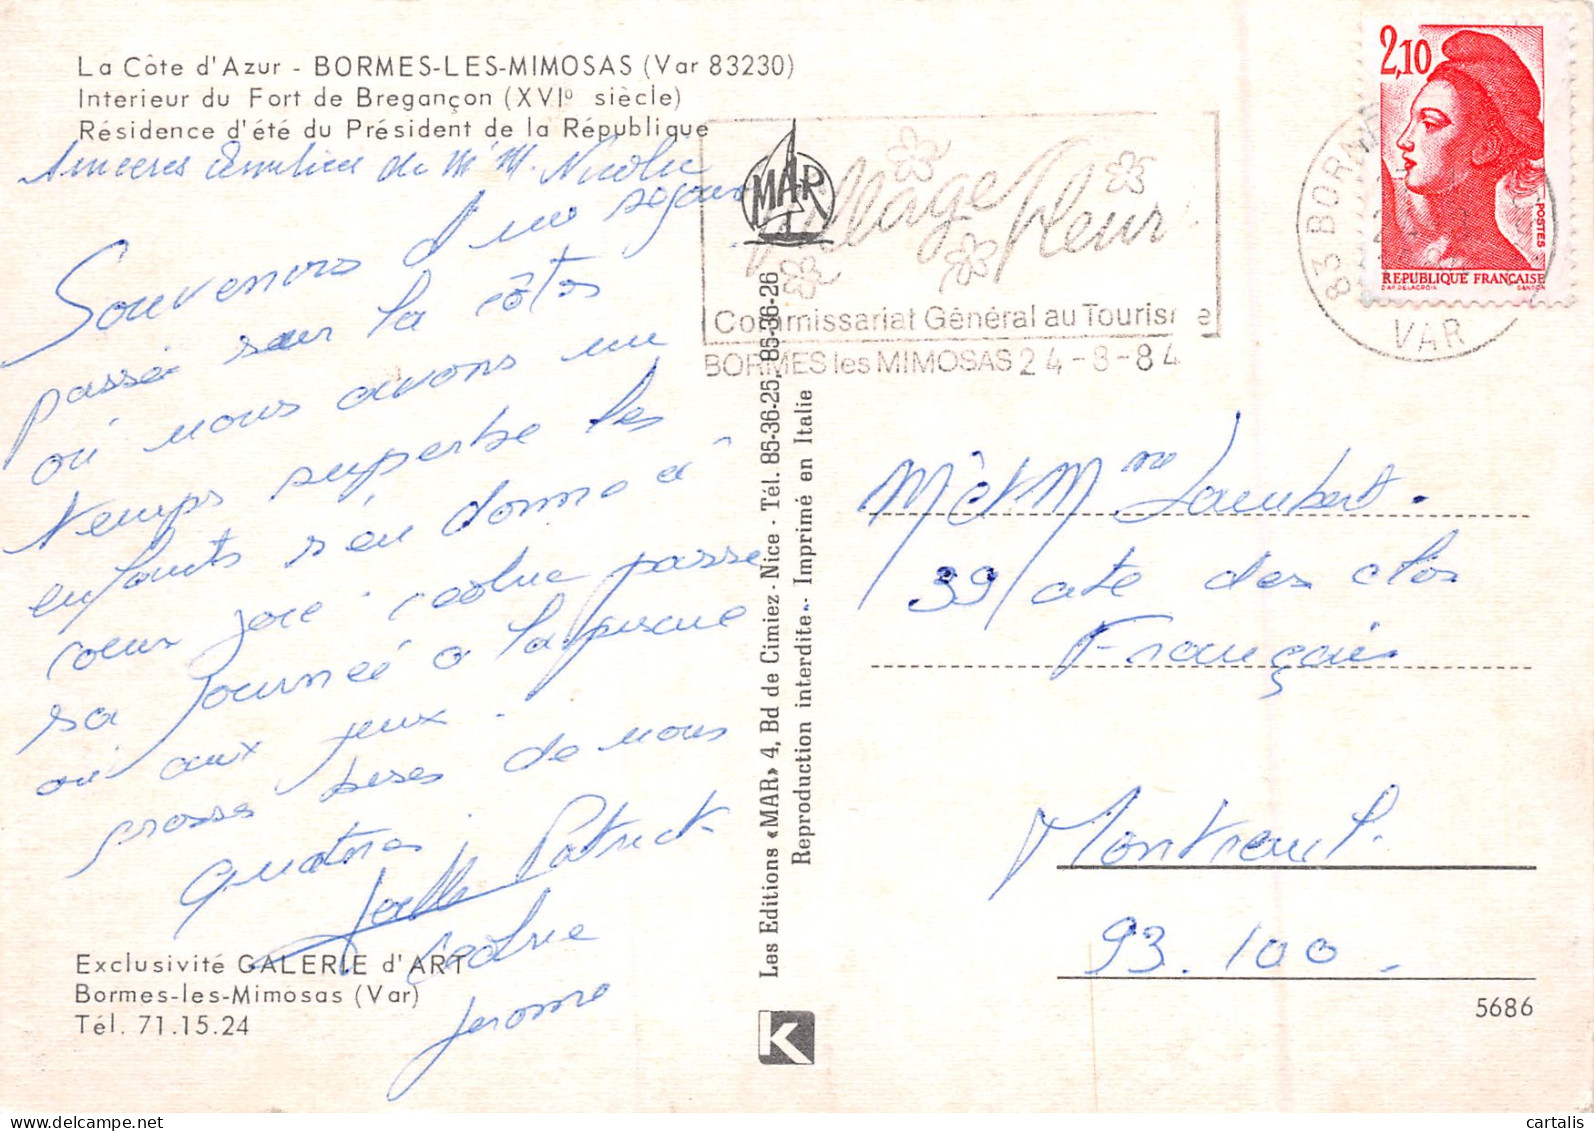 La Côte d'Azur - BORMES-LES-MIMOSAS (Var 83230)
Interieur du Fort de Bregançon (XVIº siècle)
Résidence d'été du Président de la République
Sinceres de Mr M. Nicolie
Souvenirs d'un sejour
passée sur la côtes
où nous avons un
temps superbe les
enfants s'en donne à
coeur joie. cedric passe
sa journée a la piscine
où aux jeux.
grosses bises de nous
quatres.
Joelle Patrick
cedric
Jerome
Exclusivité GALERIE d'ART
Bormes-les-Mimosas (Var)
Tél. 71.15.24
MAR
Les Editions «MAR» 4, Bd de Cimiez - Nice - Tél. 85-36-25, 85-36-26
Reproduction interdite - Imprimé en Italie
K
Village Fleuri
Commissariat Général au Tourisme
BORMES les MIMOSAS 24-8-84
2,10
POSTES
REPUBLIQUE FRANÇAISE
D'AP. DELACROIX GANDON
83 BORMES
VAR
Mr et Mme Lambert.
39 ate des clos
Français
Montreuil.
93.100.
5686
www.cartalis.com
cartalis